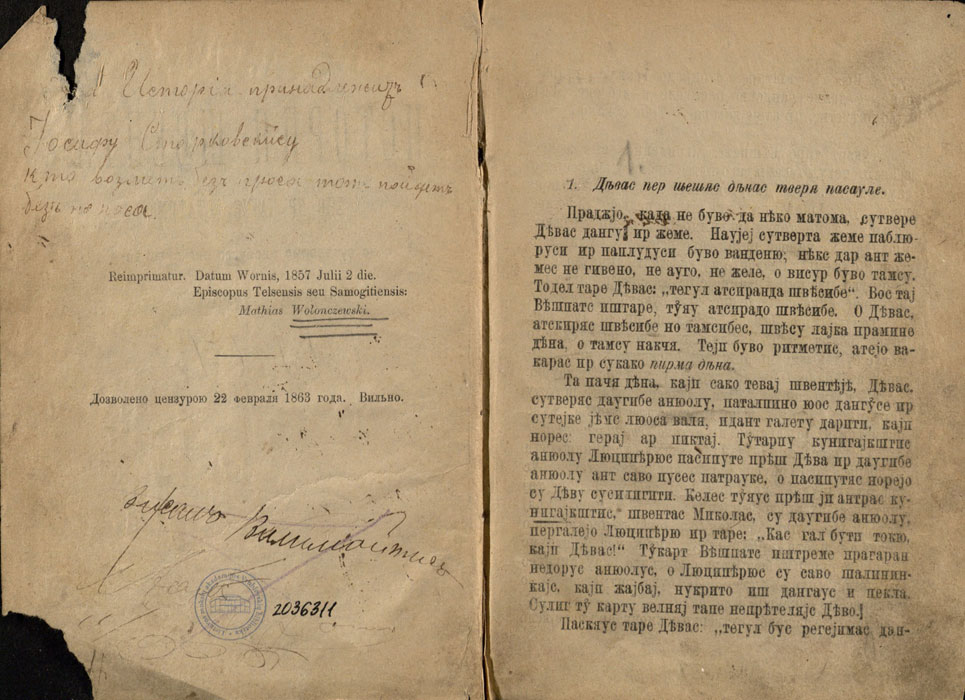 Исторія принадлежитъ
Іосифу
кто возметъ безъ тотъ пойдетъ
безъ носа.
Reimprimatur. Datum Wornis, 1857 Julii 2 die.
Episcopus Telsensis seu Samogitiensis:
Mathias Wolonczewski.
Дозволено цензурою 22 февраля 1863 года. Вильно.
2036311
1.
1. Дѣвас пер шешяс дѣнас тверя пасауле.
Праджіо, када не буво да нѣко матома, сутвере
Дѣвас дангу ир жеме. Науjej сутверта жеме паблю-
руси ир паплудуси буво ванденю; нѣкс дар ант же-
мес не гивено, не ауго, не желе, о висур буво тамсу.
Тодел таре Дѣвас: „тегул атсиранда швѣсибе“. Вос тај
Вѣшпатс иштаре, тўяу атсирадо швѣсибе. О Дѣвас,
атскиряс швѣсибе но тамсибес, швѣсу лајка прамине
дѣна, о тамсу накчя. Тејп буво ритметис, атејо ва-
карас ир сукако пирма дѣна.
Та пачя дѣна, кајп сако тевај швентѣјѣ, Дѣвас.
сутверяс даугибе анюолу, паталпино юос дангўсе ир
сутејке јѣмс люоса валя, идант галету дарити, кајп
норес: герај ар пиктај. Тўтарпу кунигајкштис
анюолу Люципѣрюс пасипуте прѣш Дѣва ир даугибе
анюолу ант саво пусес патрауке, о пасипутяс норејо
су Дѣву сусилигити. Келес тўяус прѣш јп антрас ку-
нигајкштис, швентас Миколас, су даугибе анюолу,
пергалејо Люципѣрю ир таре: „Кас гал бути токю,
кајп Дѣвас!“ Тўкарт Вѣшпатс иштреме прагаран
недорус анюолус, о Люципѣрюс су саво шалинин-
кајс, кајп жајбај, нукрито иш дангаус и пекла.
Сулиг тў карту велняј тапе непрѣтеляјс Дѣво.
Паскяус таре Дѣвас: „тегул бус регејимас дан-